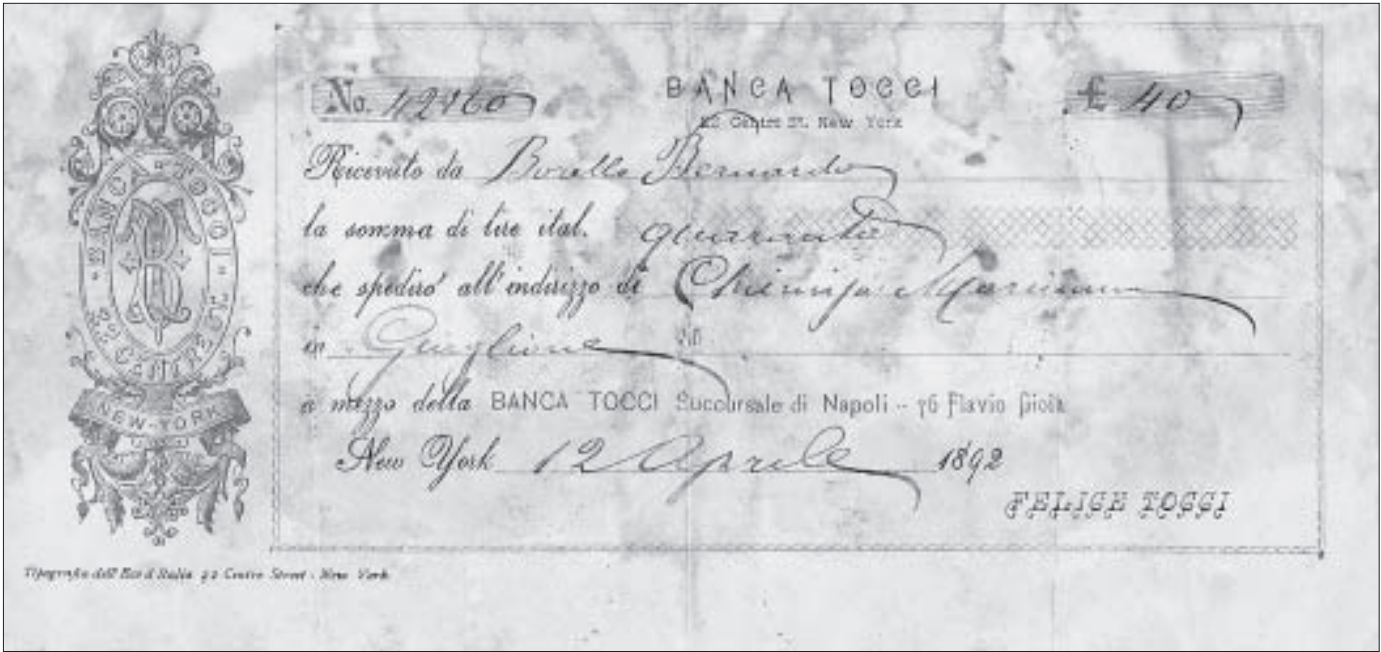 BANCA TOCCI
22 CENTRE ST
NEW-YORK
No. 42160 BANCA TOCCI £ 40
22 Centre St. New York
Ricevuto da Borello Bernardo
la somma di lire ital. quaranta
che spediró all'indirizzo di
in Guglione
a mezzo della BANCA TOCCI Succursale di Napoli -- 76 Flavio Gioia
New York 12 Aprile 1892
FELICE TOCCI
Tipografia dell'Eco d'Italia 22 Centre Street - New York